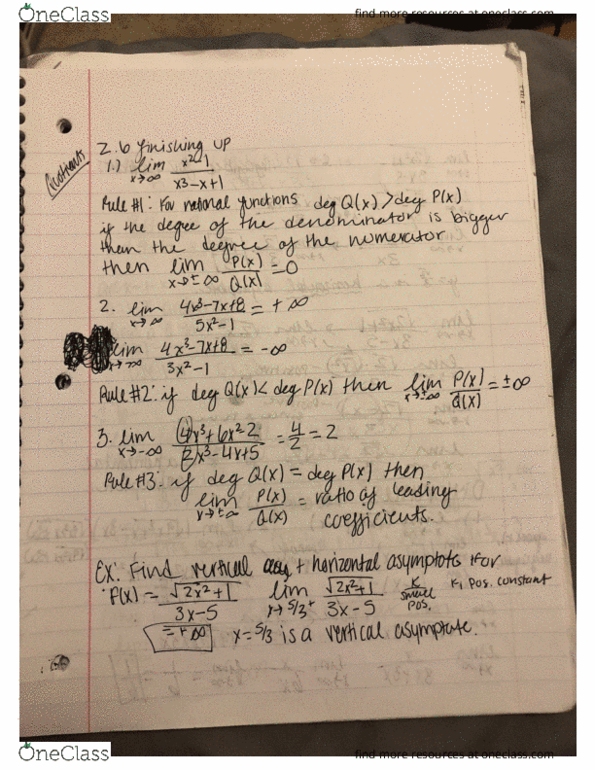 OneClass
find more resources at oneclass.com
2.6 finishing up
1.) lim x→∞ x²-1 / x³-x+1
Rule #1: For rational functions deg Q(x) > deg P(x)
if the degree of the denominator is bigger
than the degree of the numerator
then lim x→±∞ P(x)/Q(x) = 0
2. lim x→∞ 4x³-7x+8 / 5x²-1 = +∞
lim x→-∞ 4x³-7x+8 / 3x²-1 = -∞
Rule #2: if deg Q(x) < deg P(x) then lim x→±∞ P(x)/Q(x) = ±∞
3. lim x→-∞ 4x³+6x²-2 / 2x³-4x+5 = 4/2 = 2
Rule #3: if deg Q(x) = deg P(x) then
lim x→±∞ P(x)/Q(x) = ratio of leading
coefficients.
Ex: Find vertical + horizontal asymptote for
f(x) = √2x²+1 / 3x-5 lim x→5/3⁺ √2x²+1 / 3x-5 K / small pos. K, pos. constant
= +∞ x = 5/3 is a vertical asymptote.
OneClass
find more resources at oneclass.com